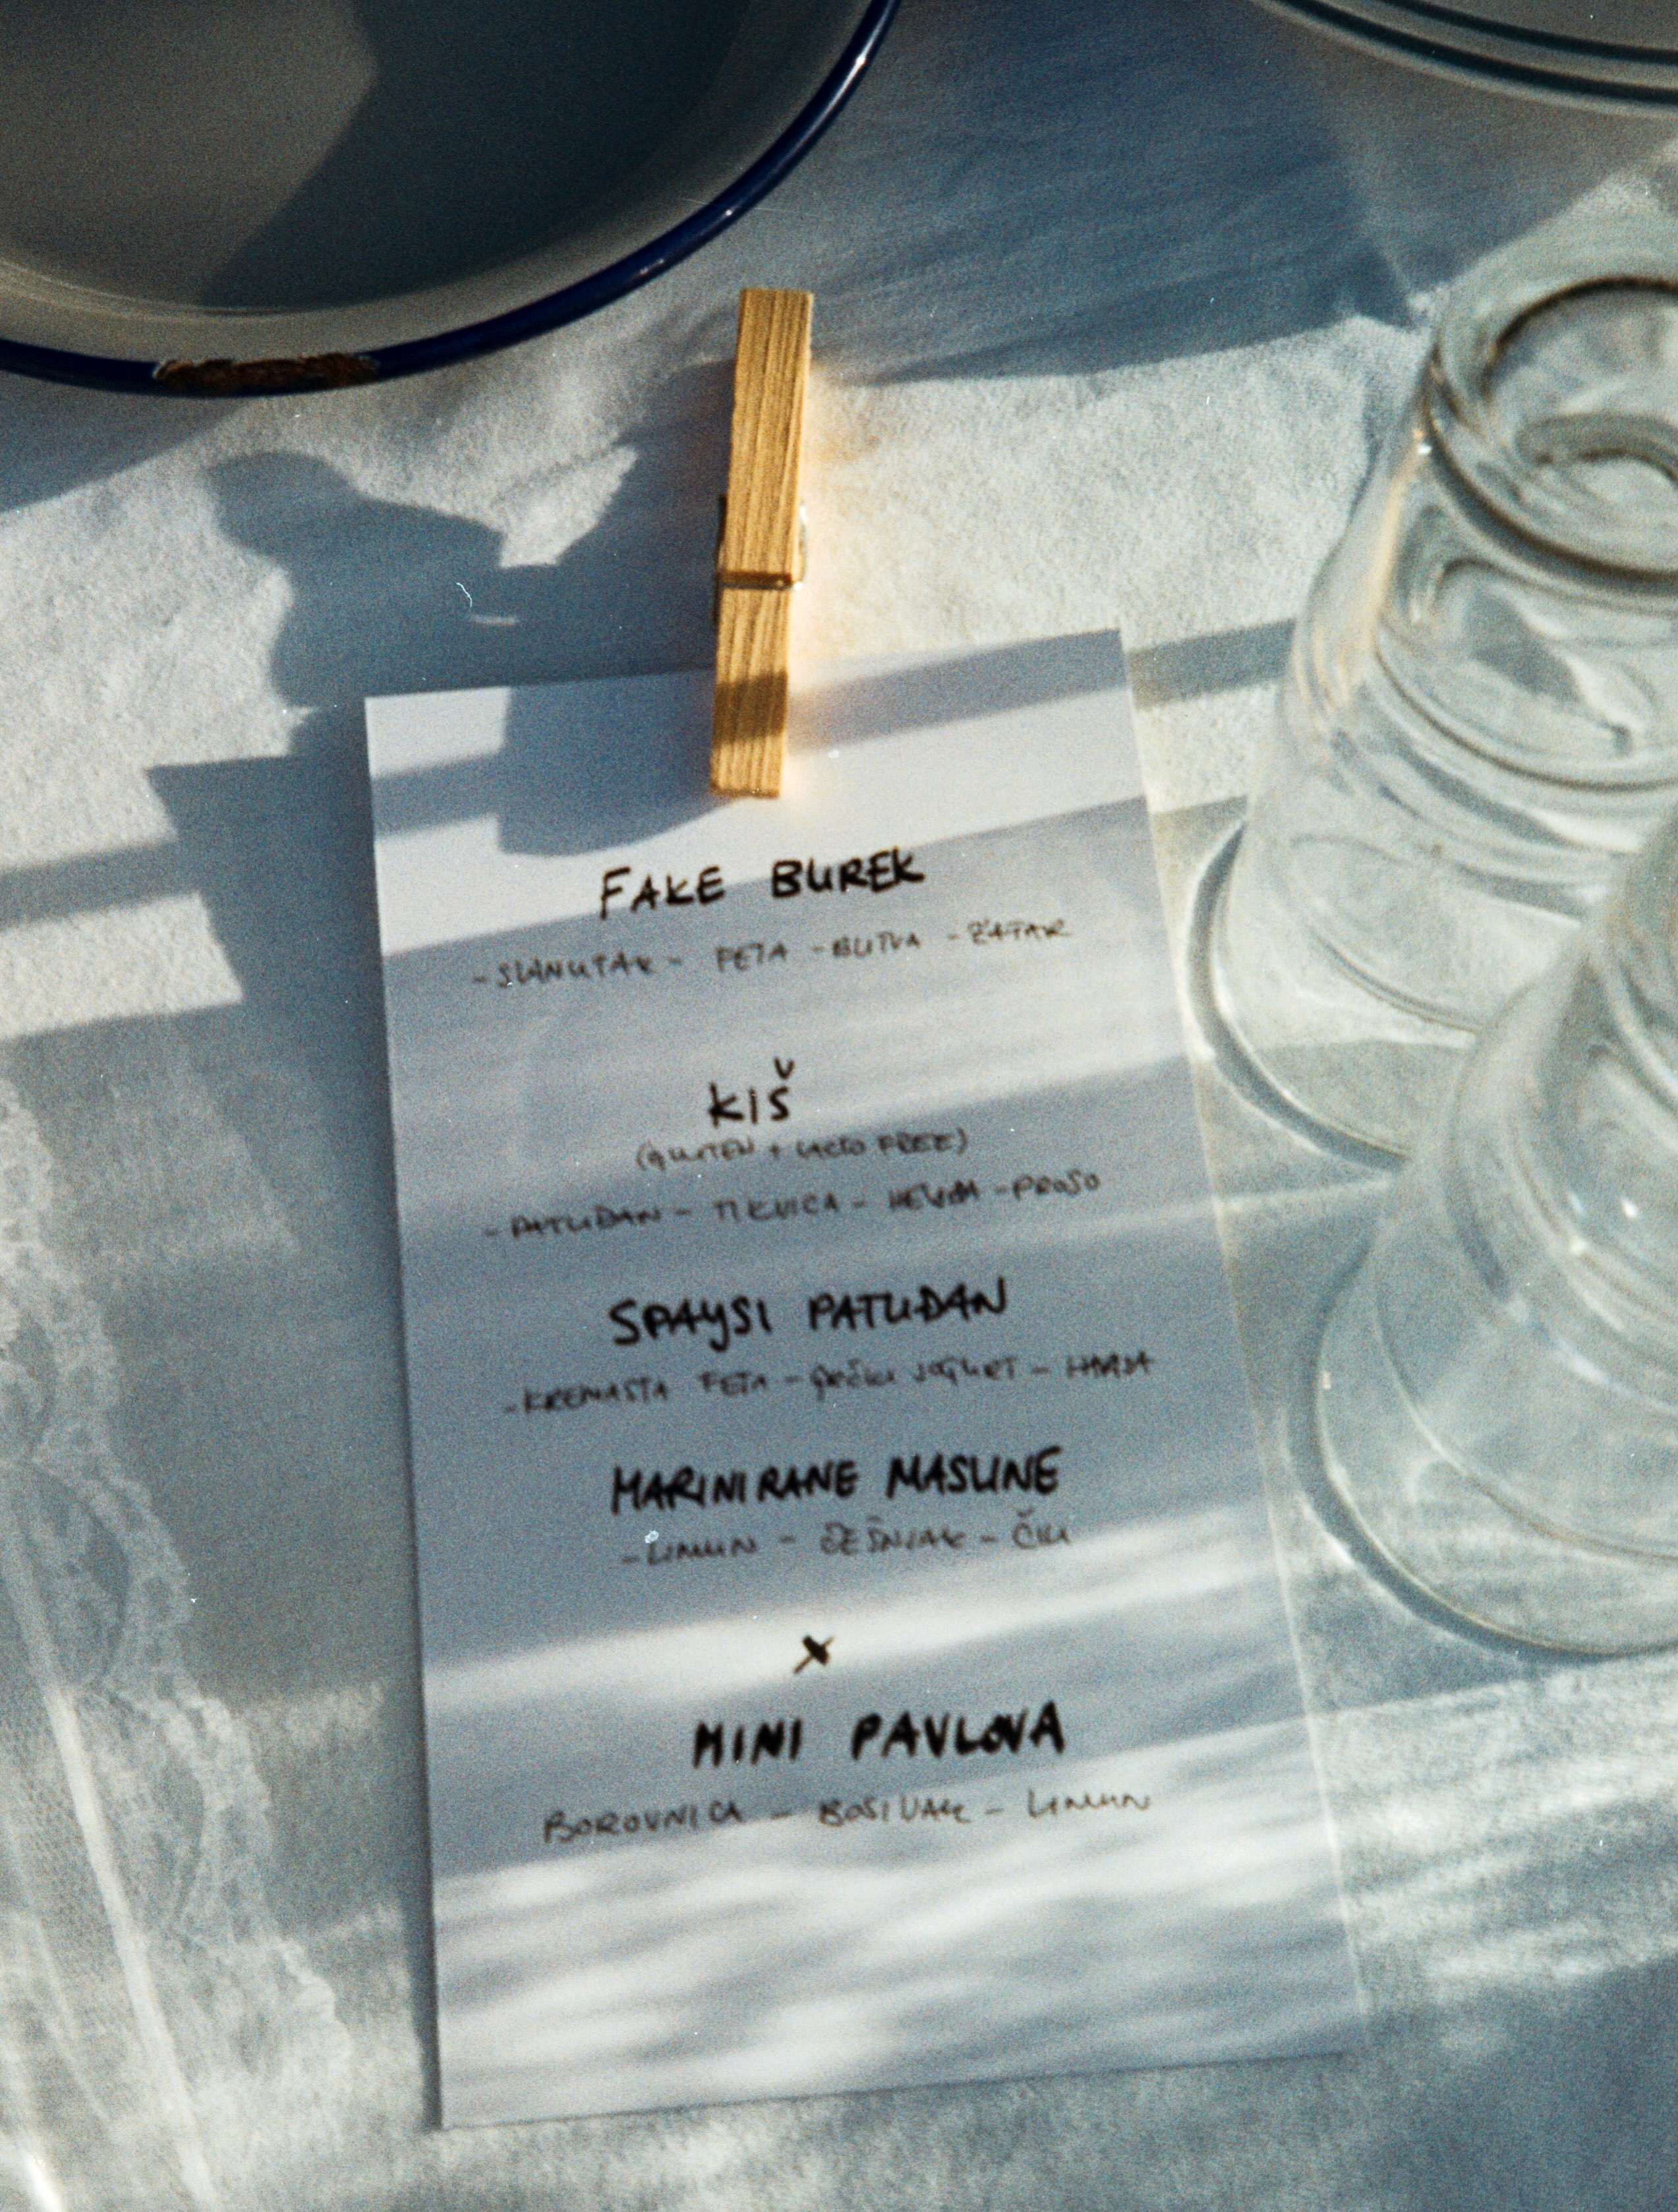 FAKE BUREK
- SLANUTAK - FETA - BLITVA - ZATAR
KIŠ
(GLUTEN + LACTO FREE)
- PATLIĐAN - TIKVICA - HELJDA - PROSO
SPAYSI PATLIĐAN
- KREMASTA FETA - grčki jogurt -
MARINIRANE MASLINE
- LIMUN - ČEŠNJAK - ČILI
x
MINI PAVLOVA
BOROVNICA - BOSILJAK - LIMUN